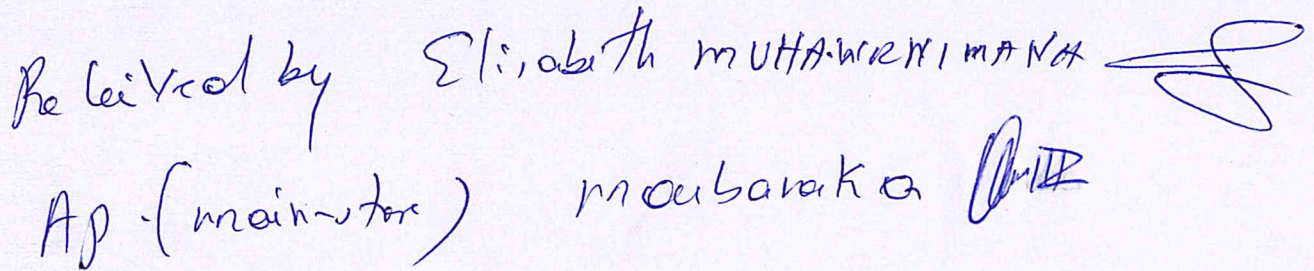 Received by Elisabeth MUHAWENIMANA
Ap. (main-store) moubaraka